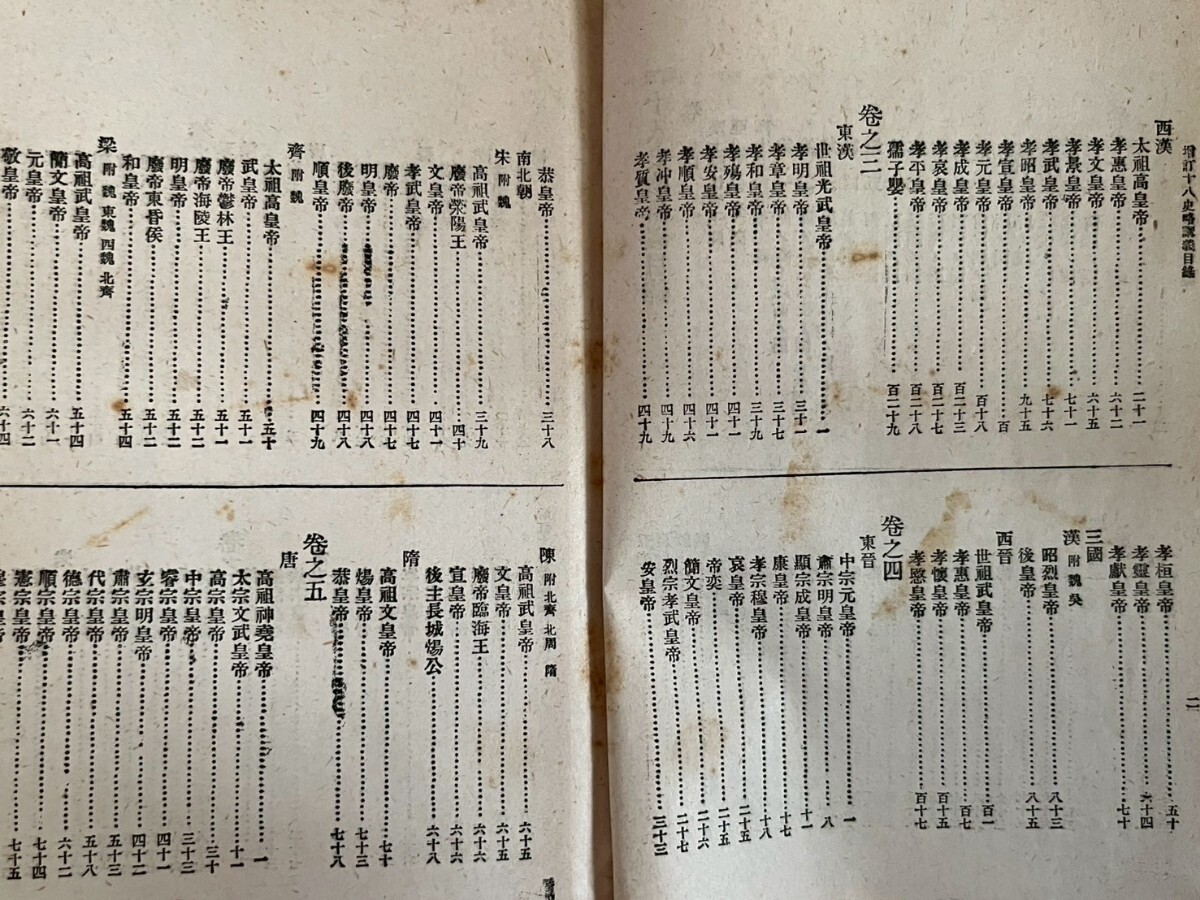 增訂十八史略講義目錄
二
西漢
太祖高皇帝 二十一
孝惠皇帝 六十二
孝文皇帝 六十五
孝景皇帝 七十一
孝武皇帝 七十六
孝昭皇帝 九十五
孝宣皇帝 百
孝元皇帝 百十八
孝成皇帝 百二十三
孝哀皇帝 百二十七
孝平皇帝 百二十八
孺子嬰 百二十九
卷之三
東漢
世祖光武皇帝 一
孝明皇帝 三十一
孝章皇帝 三十七
孝和皇帝 三十九
孝殤皇帝 四十一
孝安皇帝 四十一
孝順皇帝 四十六
孝冲皇帝 四十九
孝質皇帝 四十九
孝桓皇帝 五十
孝靈皇帝 六十四
孝獻皇帝 七十
三國
漢 附 魏 吳
昭烈皇帝 八十三
後皇帝 八十五
西晉
世祖武皇帝 百一
孝惠皇帝 百七
孝懷皇帝 百十五
孝愍皇帝 百十七
卷之四
東晉
中宗元皇帝 一
肅宗明皇帝 八
顯宗成皇帝 十一
康皇帝 十七
孝宗穆皇帝 十八
哀皇帝 二十五
帝奕 二十五
簡文皇帝 二十六
烈宗孝武皇帝 二十七
安皇帝 三十三
恭皇帝 三十八
南北朝
宋 附 魏
高祖武皇帝 三十九
廢帝滎陽王 四十
文皇帝 四十一
孝武皇帝 四十七
廢帝 四十七
明皇帝 四十八
後廢帝 四十八
順皇帝 四十九
齊 附 魏
太祖高皇帝 五十
武皇帝 五十一
廢帝鬱林王 五十一
廢帝海陵王 五十二
明皇帝 五十二
廢帝東昏侯 五十二
和皇帝 五十四
梁 附 魏 東魏 西魏 北齊
高祖武皇帝 五十四
簡文皇帝 六十一
元皇帝 六十二
敬皇帝 六十四
陳 附 北齊 北周 隋
高祖武皇帝 六十五
文皇帝 六十五
廢帝臨海王 六十六
宣皇帝 六十六
後主長城煬公 六十八
隋
高祖文皇帝 七十
煬皇帝 七十三
恭皇帝 七十八
卷之五
唐
高祖神堯皇帝 一
太宗文武皇帝 十一
高宗皇帝 三十
中宗皇帝 三十三
睿宗皇帝 四十一
玄宗明皇帝 四十二
肅宗皇帝 五十三
代宗皇帝 五十八
德宗皇帝 六十二
順宗皇帝 七十四
憲宗皇帝 七十五